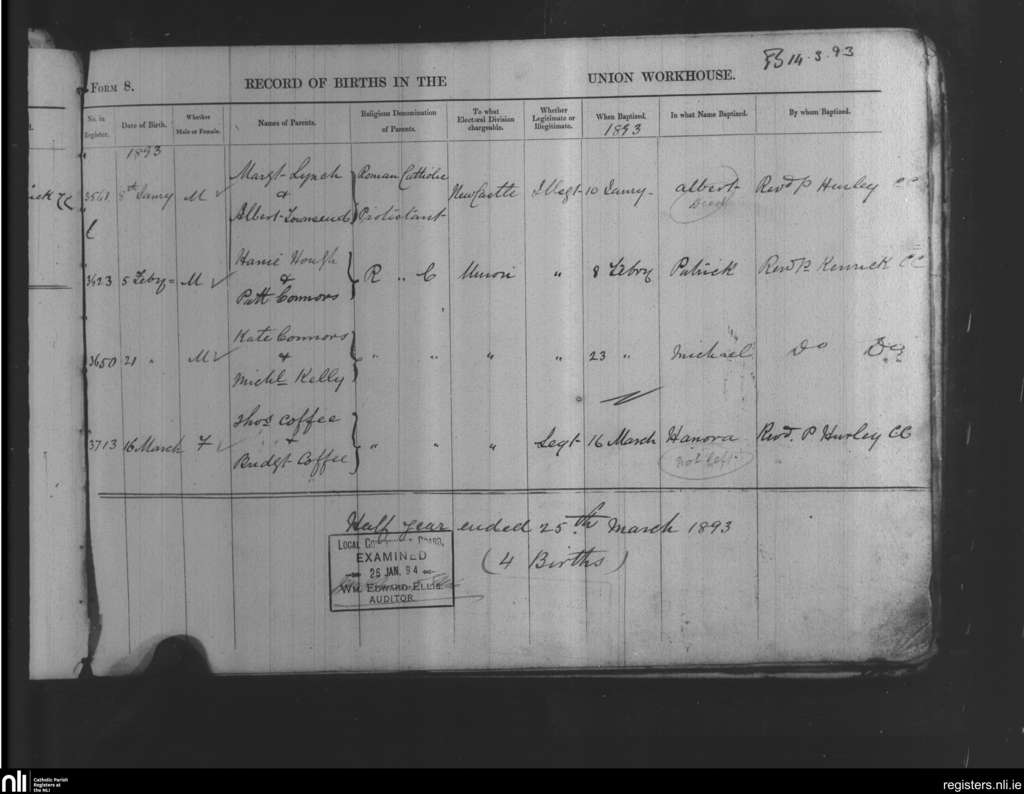 14.3.93
FORM 8. RECORD OF BIRTHS IN THE UNION WORKHOUSE.
No. in Register. Date of Birth. Whether Male or Female. Names of Parents. Religious Denomination of Parents. To what Electoral Division chargeable. Whether Legitimate or Illegitimate. When Baptized. 1893 In what Name Baptized. By whom Baptized.
1893
Margt Lynch Roman Catholic
3561 8th Janry M & New Castle Illegt 10 Janry Albert Revd P Hurley CC
Died
Albert Townsend Protistant
Hough
3623 5 Febry M & R " C Union " 8 Febry Patrick Revd P Kenrick CC
Patt Connors
Kate Connors
3650 21 " M & " " " " 23 " Michael Do Do
Michl Kelly
Thos Coffee
3713 16 March F & " " " Legt 16 March Hanora Revd. P Hurley CC
Not Left
Bridgt Coffee
Half year ended 25th March 1893
(4 Births)
LOCAL GOVERNMENT BOARD,
EXAMINED
26 JAN. 94
WM. EDWARD ELLIS
AUDITOR.
nli Catholic Parish
Registers at
the NLI
registers.nli.ie